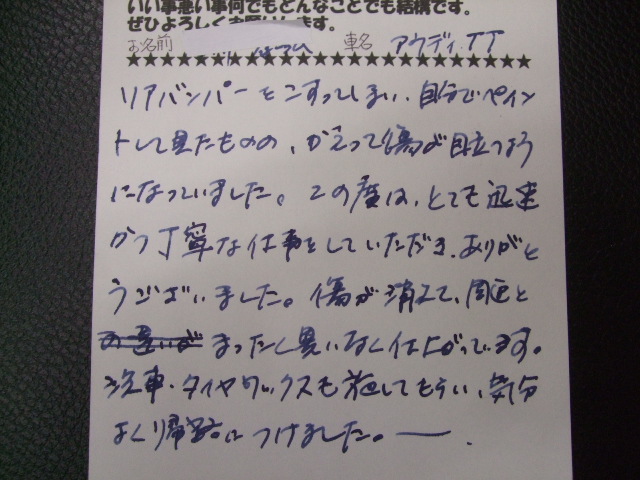 いい事悪い事何でもどんなことでも結構です。
ぜひよろしくお願いします。
お名前 車名 アウディ.TT
★★★★★★★★★★★★★★★★★★★★★★★★★
リアバンパーをこすってしまい、自分でペイン
トして見たものの、かえって傷が目立つよう
になっていました。この度は、とても迅速
かつ丁寧な仕事をしていただき、ありがと
うございました。傷が消えて、周辺と
の違いが まったく異いなく仕上がってます。
洗車・タイヤワックスも施してもらい、気分
よく帰路につけました。ー.